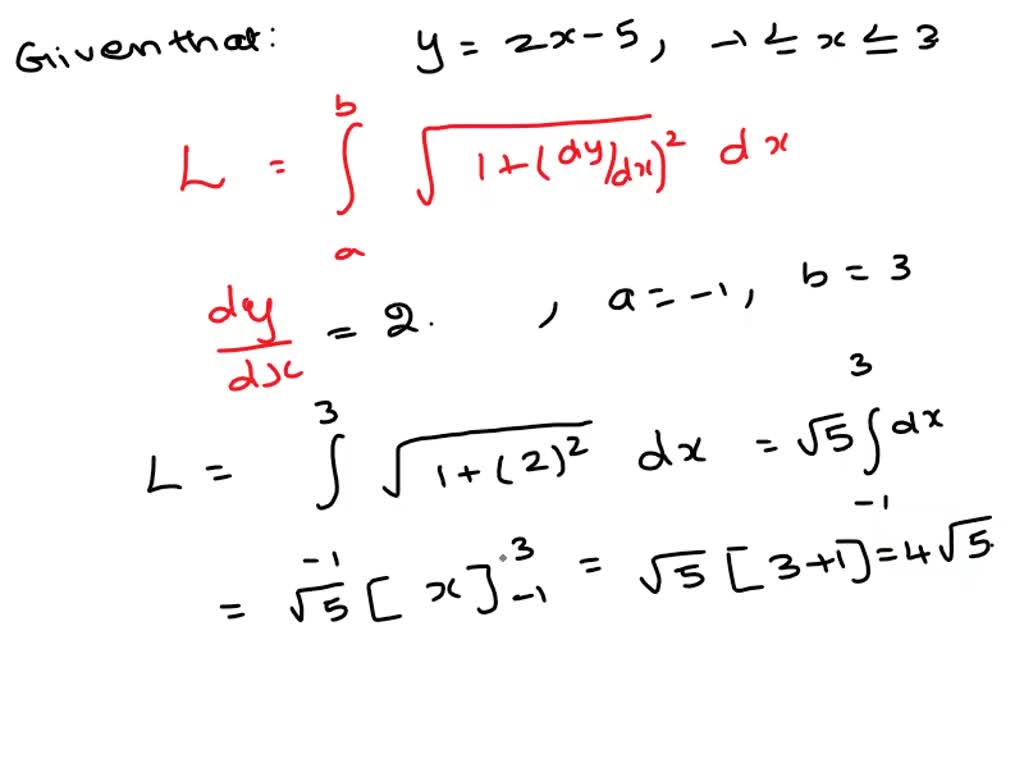 Given that: y = 2x - 5, -1 ≤ x ≤ 3
L = ∫_a^b √(1+(dy/dx)²) dx
dy/dx = 2. , a = -1, b = 3
L = ∫_{-1}^3 √(1+(2)²) dx = √5 ∫_{-1}^3 dx
= √5 [x]_{-1}^3 = √5 [3+1] = 4√5.